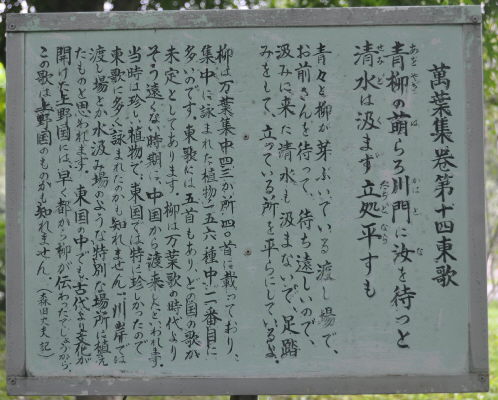 萬葉集巻第十四東歌
青柳の萌らろ川門に汝を待つと
清水は汲まず立処平すも
青々と柳が芽ぶいている渡し場で、
お前さんを待って、待ち遠しいので、
汲みに来た清水も汲まないで、足踏
みをして、立っている所を平らにしているよ。
柳は万葉集中四三か所四首に載っており、
集中に詠まれた植物一五六種中一一番目に
多いのです。東歌には五首もあり、どの国の歌か
未定としてあります。柳は万葉歌の時代より
そう遠くない時期に、中国から渡来したといわれます。
当時は珍しい植物で、東国では特に珍しかったので
東歌に多く詠まれたのかも知れません。川岸では
渡し場とか水汲み場のような特別な場所に植え
たものと思われます。東国の中でも、古代より文化が
開けた上野国には、早く都から柳が伝わったでしょうから、
この歌は上野国のものかも知れません。